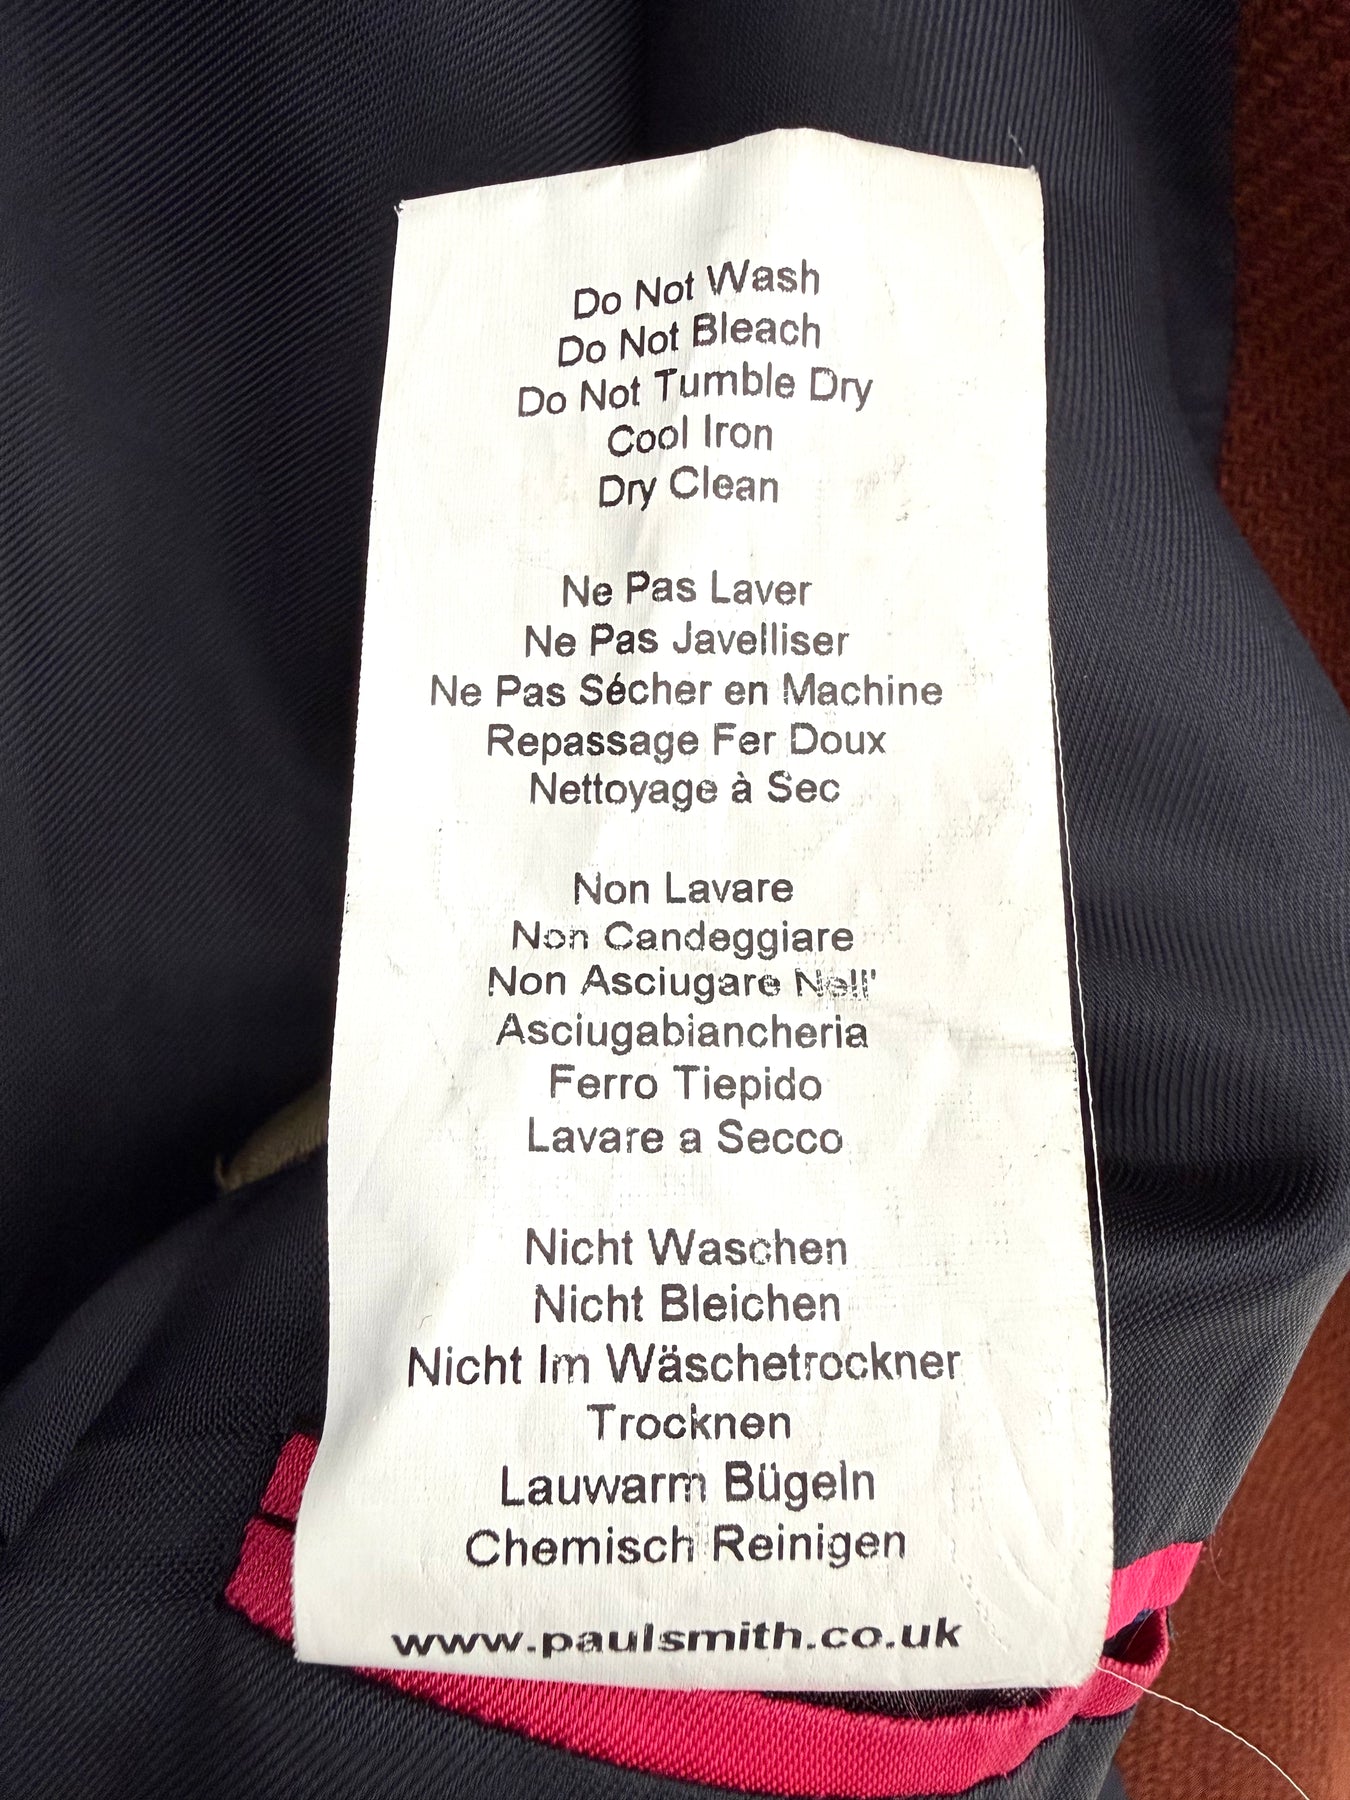 Do Not Wash
Do Not Bleach
Do Not Tumble Dry
Cool Iron
Dry Clean
Ne Pas Laver
Ne Pas Javelliser
Ne Pas Sécher en Machine
Repassage Fer Doux
Nettoyage à Sec
Non Lavare
Non Candeggiare
Non Asciugare Nell'
Asciugabiancheria
Ferro Tiepido
Lavare a Secco
Nicht Waschen
Nicht Bleichen
Nicht Im Wäschetrockner
Trocknen
Lauwarm Bügeln
Chemisch Reinigen
www.paulsmith.co.uk